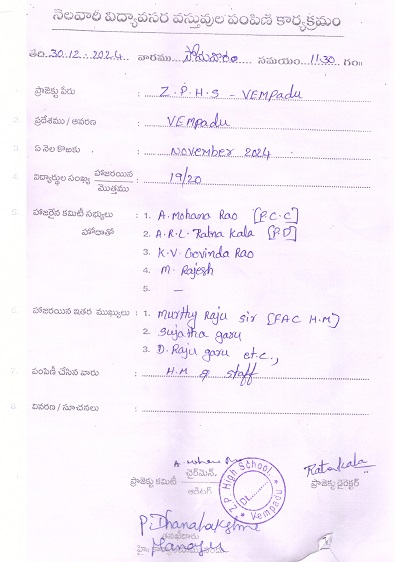 నెలవారీ విద్యావసర వస్తువుల పంపిణి కార్యక్రమం
తేది. 30.12.2024 వారము సోమవారం సమయం 11:30 గం॥
1. ప్రాజెక్టు పేరు : Z.P.H.S - VEMPADU
2. ప్రదేశము / ఆవరణ : VEMPadu
3. ఏ నెల కొఱకు : November 2024
4. విద్యార్థుల సంఖ్య హాజరయిన / మొత్తము : 19/20
5. హాజరైన కమిటీ సభ్యులు : 1. A. Mohana Rao [P.C.C]
హోదాతో 2. A.R.L. Ratna Kala [P.D]
3. K.V. Govinda Rao
4. M. Rajesh
5. —
6. హాజరయిన ఇతర ముఖ్యులు : 1. Murthy Raju Sir [FAC H.M]
2. Sujatha garu
3. D. Raju garu etc.,
7. పంపిణీ చేసిన వారు : H.M & Staff
8. వివరణ / సూచనలు :
ప్రాజెక్టు కమిటీ చైర్మెన్. / ఆడిటర్
Z.P. High School
Vempadu
Ratnakala
ప్రాజెక్టు డైరెక్టర్
P. Dhanalakshmi